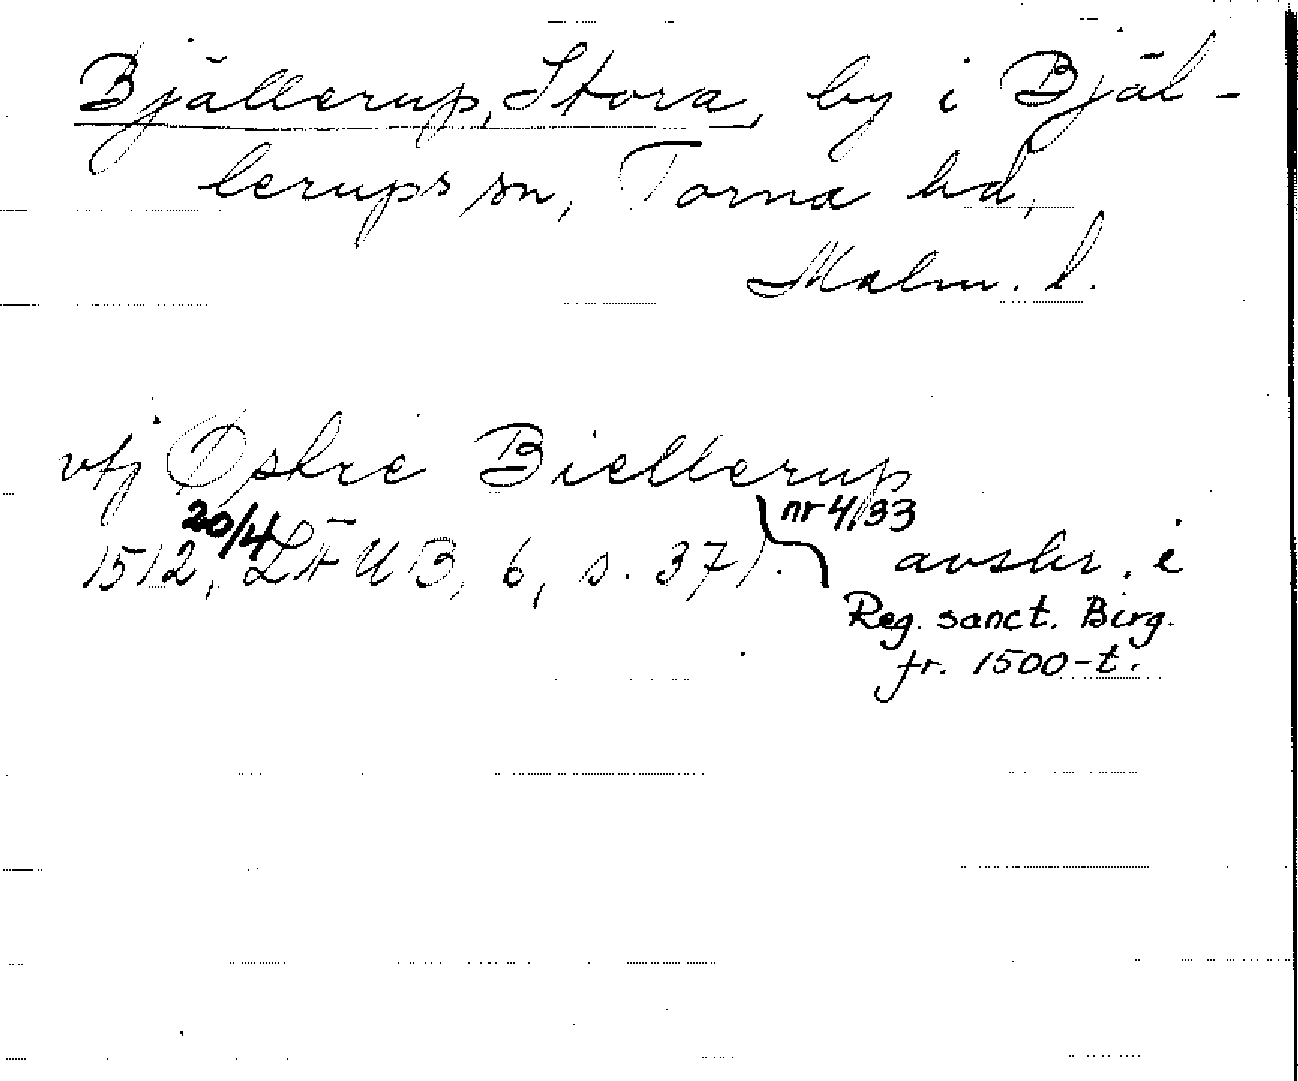 Bjällerup, Stora, by i Bjäl-
lerups sn, Torna hd,
Malm. l.
vtj Østre Biellerup
1512, 20/4 LÄUB, 6, s. 37). nr 4/33 avskr. i
Reg. sanct. Birg.
fr. 1500-t.